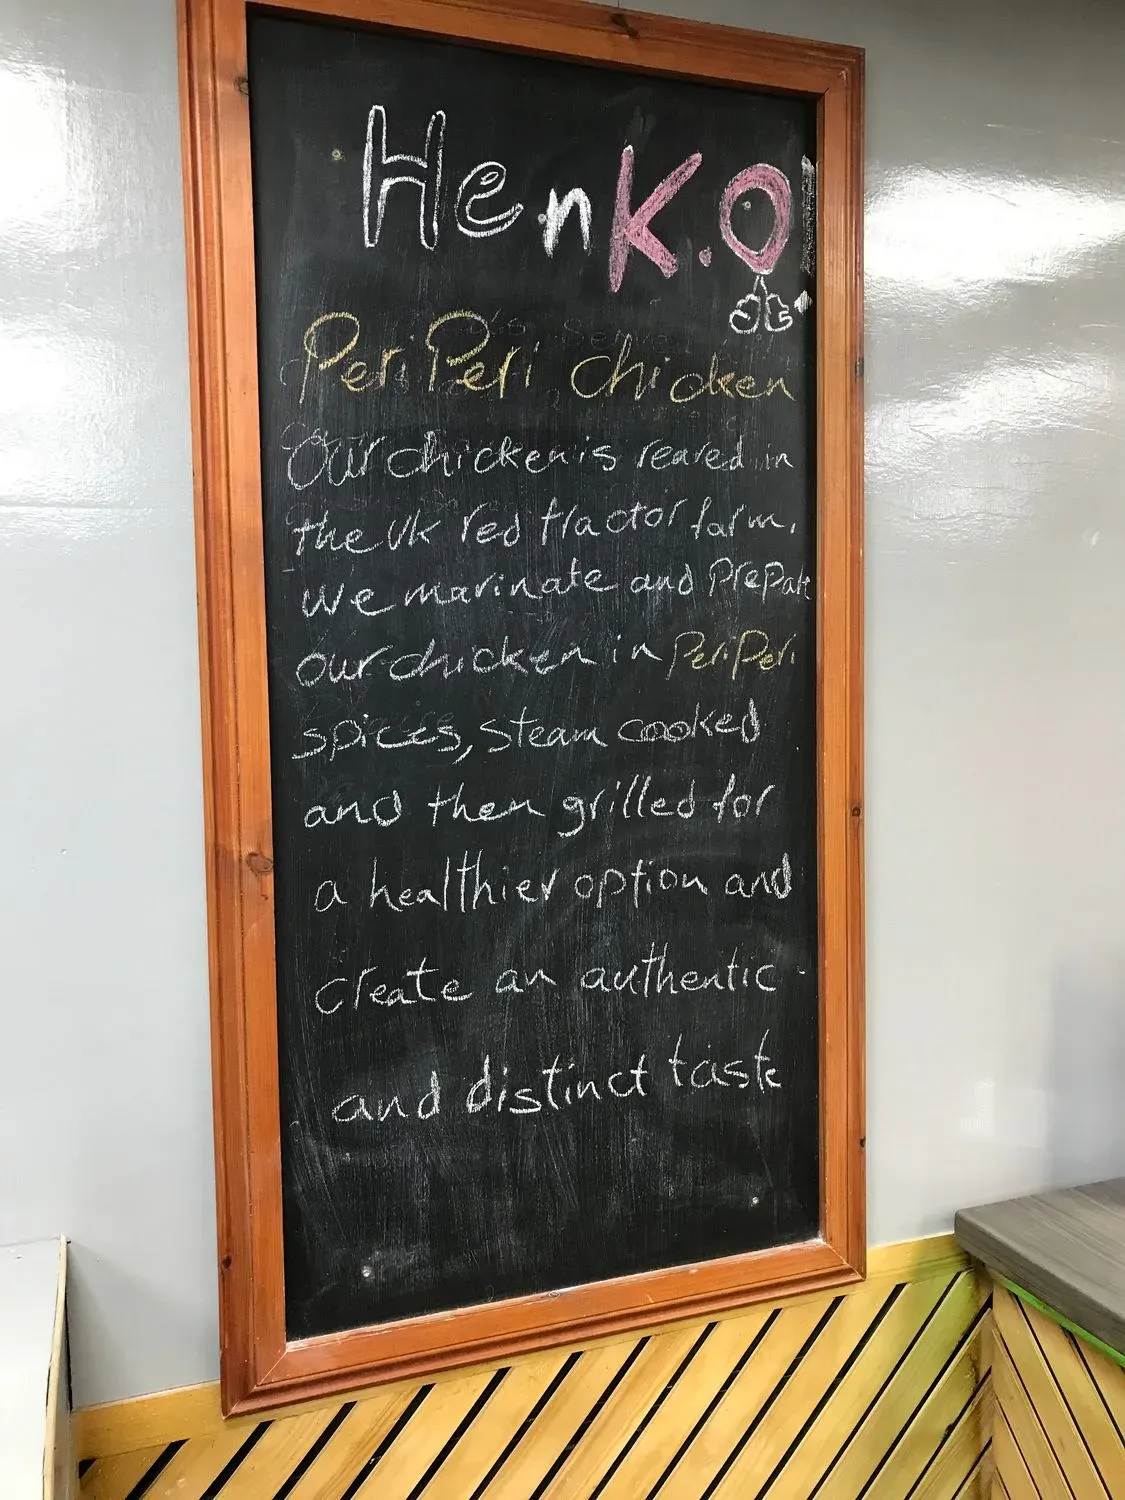 HenK.O!
Peri Peri chicken
Our chicken is reared in
the UK red tractor farm.
We marinate and Prepare
our chicken in Peri Peri
spices, steam cooked
and then grilled for
a healthier option and
create an authentic
and distinct taste